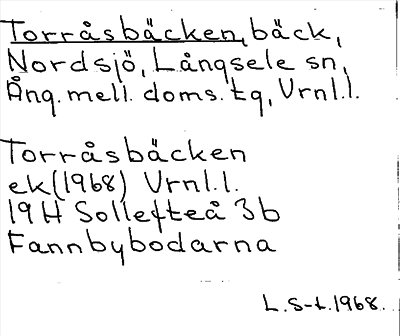 Torråsbäcken, bäck,
Nordsjö, Långsele sn,
Ång. mell. doms. tg, Vrnl.l.
Torråsbäcken
ek (1968) Vrnl.l.
19H Sollefteå 3b
Fannbybodarna
L.S-t.1968.